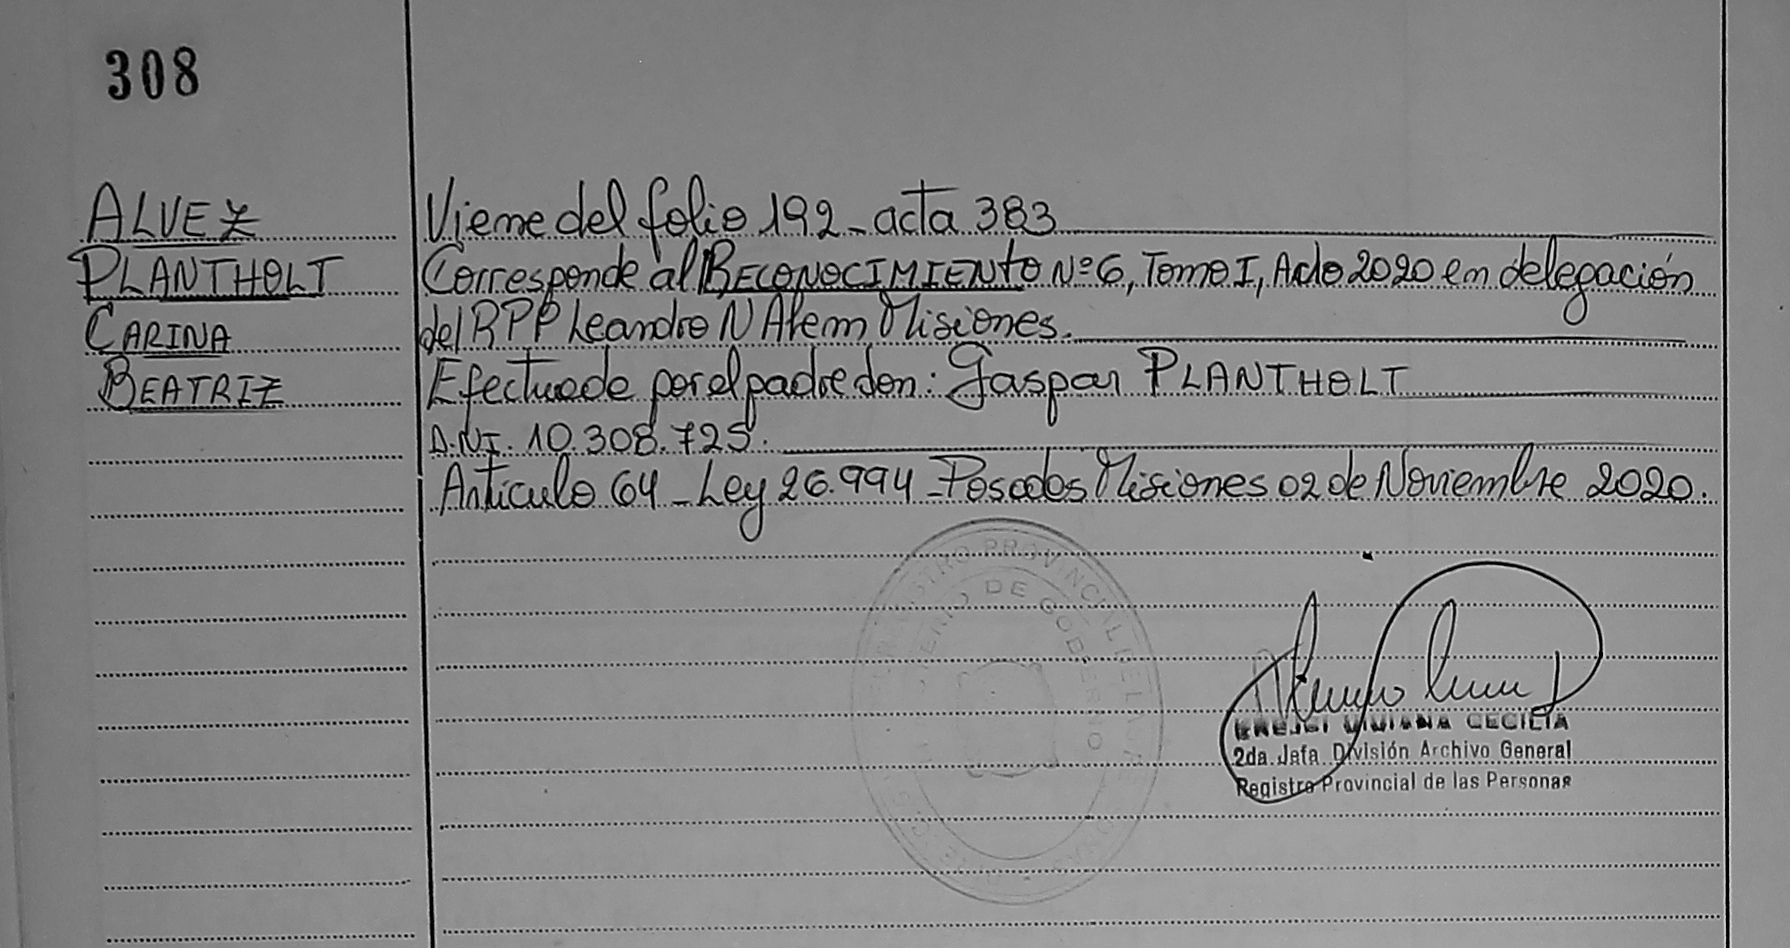 308
ALVEZ
PLANTHOLT
CARINA
BEATRIZ
Viene del folio 192_acta 383
Corresponde al RECONOCIMIENTO Nº6, Tomo I, Año 2020 en delegación
del RPP Leandro N Alem Misiones.
Efectuado por el padre don: Gaspar PLANTHOLT
D.N.I. 10.308.725.
Artículo 64_Ley 26.994_Posadas Misiones 02 de Noviembre 2020.
REGISTRO PROVINCIAL DE LAS PERSONAS
MINISTERIO DE GOBIERNO
VIVIANA CECILIA
2da. Jefa División Archivo General
Registro Provincial de las Personas